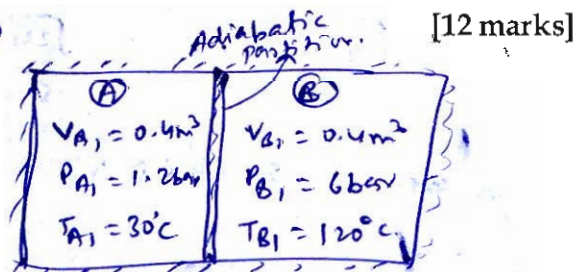 [12 marks]
Adiabatic
Partition.
A
V_A₁ = 0.4m³
P_A₁ = 1.2bar
T_A₁ = 30°C
B
V_B₁ = 0.4m³
P_B₁ = 6bar
T_B₁ = 120°C.